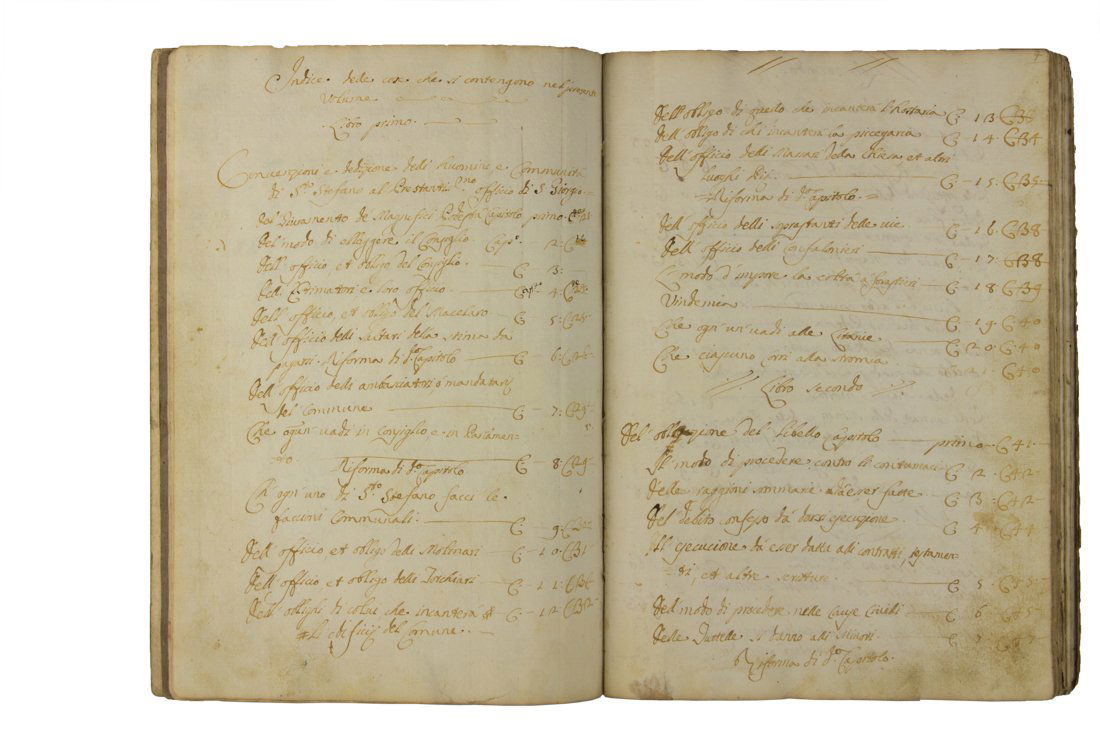 Indice delle cose che si contengono nel presente
Volume
Libro primo.
Convenzione e dedizione delli Huomini e Communità
di S.to Stefano al Prestantis.mo officio di S. Giorgio
Del Giuramento de Magnifici Podestà Capitolo primo
Del modo di elleggere il Consiglio Cap.o 2:
Dell' officio et obligo del Consiglio C 3:
Delli Estimatori e loro officio Cap.o 4:
Dell' officio, et obligo del Macelaro C 5:
Dell' officio delli
pagarsi. Riforma di d.o Capitolo C 6:
Dell' officio delli ambasciatori o mandatarij
del Commune C 7:
Che ogn'un vadi in Consiglio e in Parlamen-
to Riforma di d.o Capitolo C 8:
Ch' ogni uno di S.to Stefano facci le
facioni Communali. C 9:
Dell' officio et obligo delli Molinari C 10: C 31
Dell' officio et obligo delli Torchiari C 11:
Dell' obligo di colui che incanterà C 12: C 32
li edificij del Comune.
Dell' obligo di quello che incanterà l'hostaria C 13
Dell' obligo di chi incanterà la pescegaria C 14. C 34
Dell' officio delli Massari della Chiesa et altri
luoghi Pij. C 15: C 35
Riforma di d.o Capitolo
Dell' officio delli soprastanti delle vie C 16. C 38
Dell' officio delli Confalonieri C 17. C 38
modo d'impore la colta a forastieri C 18 C 39
Vindemia C 19. C 40
Che ogn'un vadi alle Litanie C 20. C 40
Che ciascuno alla C 40
Libro secondo
Del Libello Capitolo primo C 41.
Il modo di procedere contro li contumaci C 2. C 42
Delle raggioni sommarie da esser fatte C 3. C 42
Del debito confesso da darsi esecuzione C 4 C 44
esecuzione da esser datta alli contratti, testamen-
ti, et altre scritture C 5
Del modo di procedere nelle Cause Civili C 6 C 45
Delle si danno alli Minori
Riforma di d.o Capitolo.